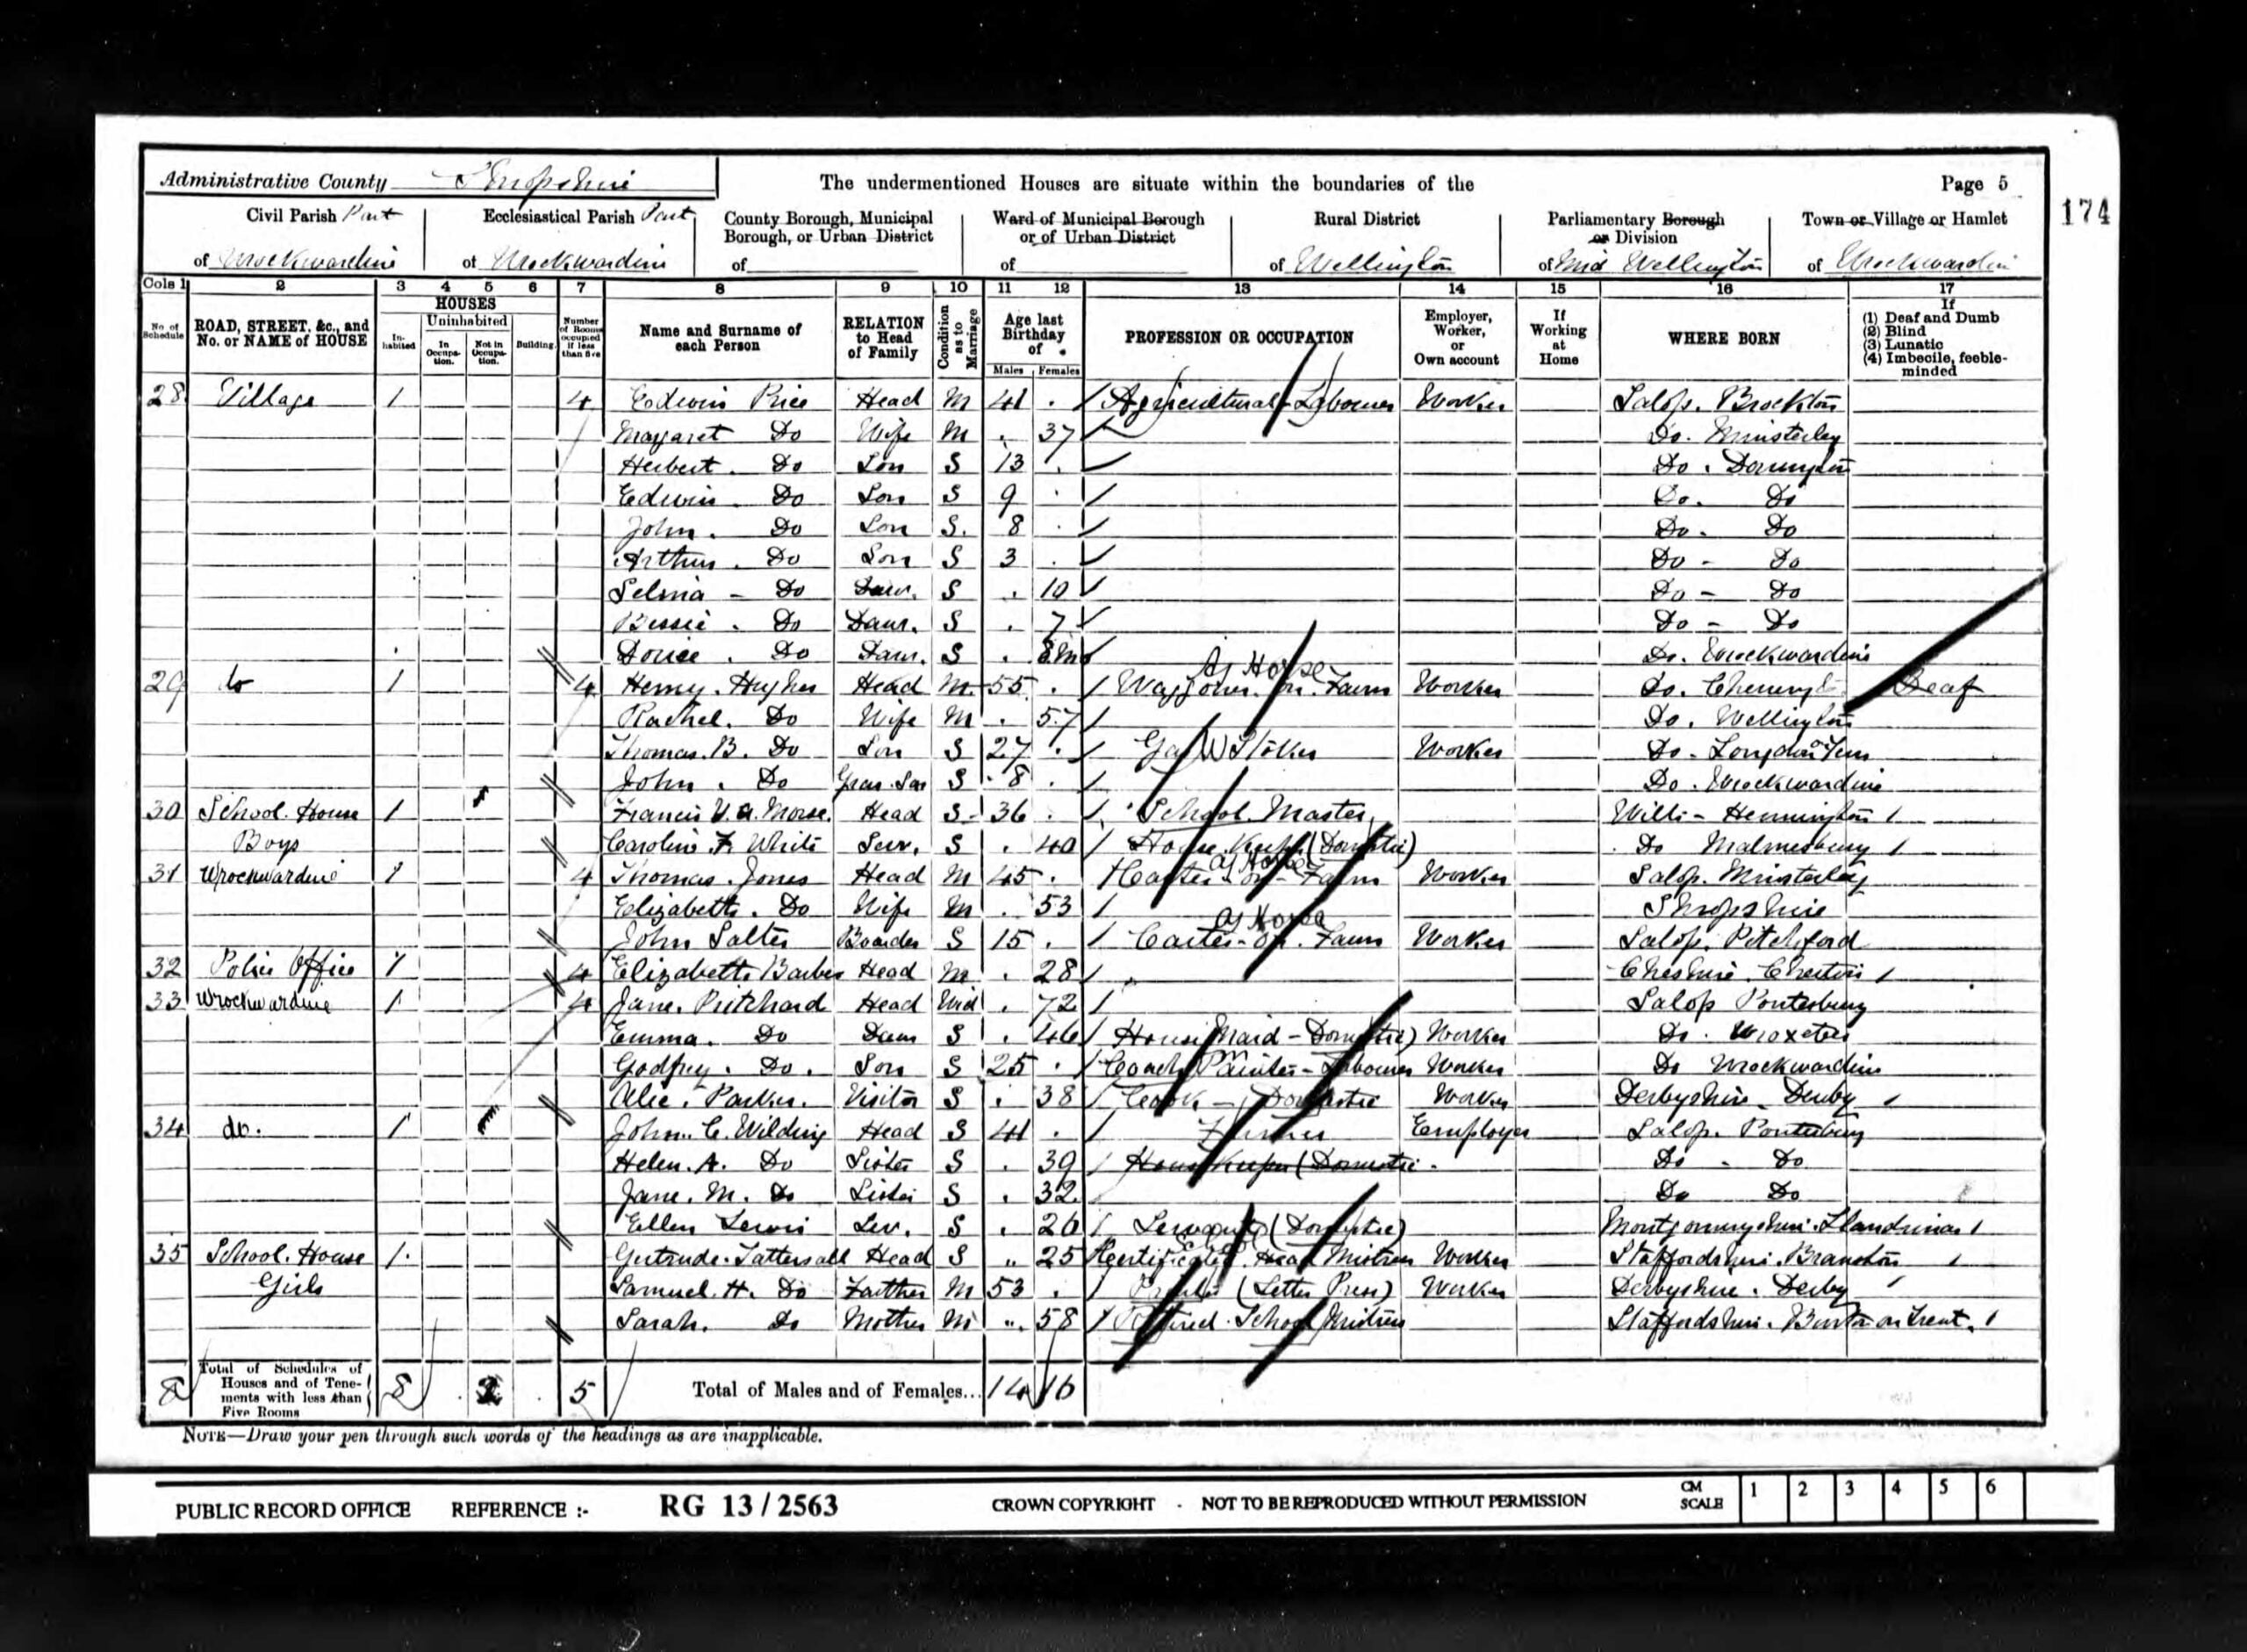 Administrative County Shropshire
The undermentioned Houses are situate within the boundaries of the
Page 5
174
Civil Parish Part of Wrockwardine
Ecclesiastical Parish Part of Wrockwardine
County Borough, Municipal Borough, or Urban District of
Ward of Municipal Borough or of Urban District of
Rural District of Wellington
Parliamentary Borough or Division of Mid Wellington
Town or Village or Hamlet of Wrockwardine
Cols 1 2 3 4 5 6 7 8 9 10 11 12 13 14 15 16 17
No of Schedule
ROAD, STREET, &c., and No. or NAME of HOUSE
HOUSES
In-habited
Uninhabited
In Occupa-tion.
Not in Occupa-tion.
Building.
Number of Rooms occupied if less than five
Name and Surname of each Person
RELATION to Head of Family
Condition as to Marriage
Age last Birthday of
Males Females
PROFESSION OR OCCUPATION
Employer, Worker, or Own account
If Working at Home
WHERE BORN
If
(1) Deaf and Dumb
(2) Blind
(3) Lunatic
(4) Imbecile, feeble-minded
28 Village 1 4 Edwin Rice Head M 41 Agricultural Labourer Worker Salop. Brockton
Margaret Do Wife M 37 Do. Minsterley
Herbert. Do Son S 13 Do. Donnington
Edwin. Do Son S 9 Do. Do
John. Do Son S. 8 Do. Do
Arthur. Do Son S 3 Do - Do
Selina - Do Daur. S 10 Do - Do
Bessie. Do Daur. S 7 Do - Do
Do Daur. S 8m Do. Wrockwardine
29 do 1 4 Henry. Hughes Head M. 55 Waggoner. on. Farm Worker Do. Deaf
Rachel. Do Wife M 57 Do. Wellington
Thomas. B. Do Son S 27 Gas W Stoker Worker Do - Longdon
John. Do Gran. Son S 8 Do. Wrockwardine
30 School. House 1 Francis V. A. Morse. Head S - 36 School. Master Wilts -
Boys Caroline. F. White Serv. S 40 House Keeper (Domestic) Do Malmesbury
31 Wrockwardine 1 4 Thomas. Jones Head M 45 Carter - on - Farm Worker Salop. Minsterley
Elizabeth. Do Wife M 53 Shropshire
John Salter Boarder S 15 Carter - on. Farm Worker Salop. Pitchford
32 Police Office 1 4 Elizabeth Barber Head M 28 Cheshire.
33 Wrockwardine 1 4 Jane. Pritchard Head Wid 72 Salop Pontesbury
Emma. Do Daur S 46 House Maid - Domestic) Worker Do. Wroxeter
Godfrey. Do. Son S 25 Coach Painter - Labourer Worker Do Wrockwardine
Alice. Parker. Visitor S 38 Cook - Domestic Worker Derbyshire. Derby
34 do. 1 John. C. Wilding Head S 41 Farmer Employer Salop. Pontesbury
Helen. A. Do Sister S 39 House Keeper (Domestic. Do - Do
Jane. M. Do Sister S 32. Do Do
Ellen Lewis Ser. S 26 Servant (Domestic) Montgomeryshire. Llandrinio
35 School. House 1. Gertrude. Tattersall Head S 25 Certificated Head Mistress Worker Staffordshire. Branston
Girls Samuel. H. Do Father M 53 Printer (Letter Press) Worker Derbyshire. Derby
Sarah. Do Mother M 58 Retired. School Mistress Staffordshire. Burton on Trent.
8 Total of Schedules of Houses and of Tene-ments with less than Five Rooms 8 2 5 Total of Males and of Females... 14 16
NOTE—Draw your pen through such words of the headings as are inapplicable.
PUBLIC RECORD OFFICE REFERENCE :- RG 13 / 2563 CROWN COPYRIGHT - NOT TO BE REPRODUCED WITHOUT PERMISSION CM SCALE 1 2 3 4 5 6